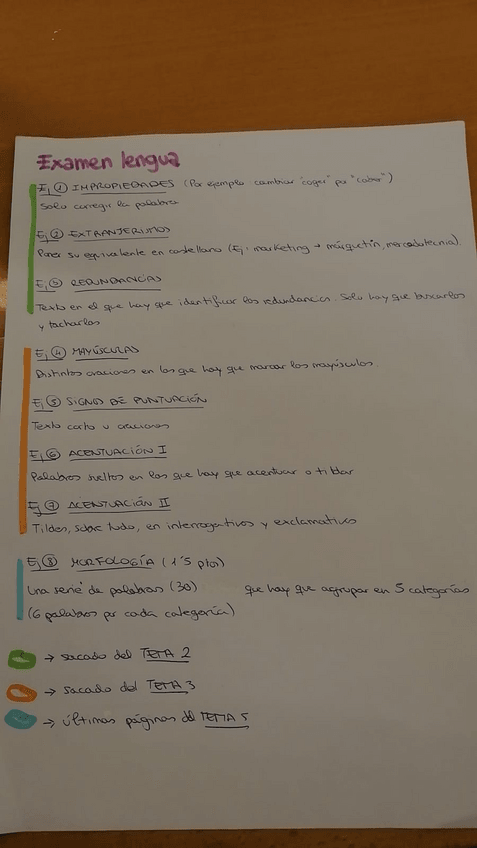 Examen lengua
Ej ① IMPROPIEDADES (Por ejemplo cambiar "coger" por "caber")
Solo corregir la palabra
Ej ② EXTRANJERISMOS
Poner su equivalente en castellano (Ej: marketing → márquetin, mercadotecnia).
Ej ③ REDUNDANCIAS
Texto en el que hay que identificar las redundancias. Solo hay que buscarlas
y tacharlas
Ej ④ MAYÚSCULAS
Distintas oraciones en las que hay que marcar las mayúsculas.
Ej ⑤ SIGNOS DE PUNTUACIÓN
Texto corto u oraciones
Ej ⑥ ACENTUACIÓN I
Palabras sueltas en las que hay que acentuar o tildar
Ej ⑦ ACENTUACIÓN II
Tildes, sobre todo, en interrogativos y exclamativos
Ej ⑧ MORFOLOGÍA (1'5 ptos)
Una serie de palabras (30) que hay que agrupar en 5 categorías
(6 palabras por cada categoría)
→ sacado del TEMA 2
→ sacado del TEMA 3
→ últimas páginas del TEMA 5